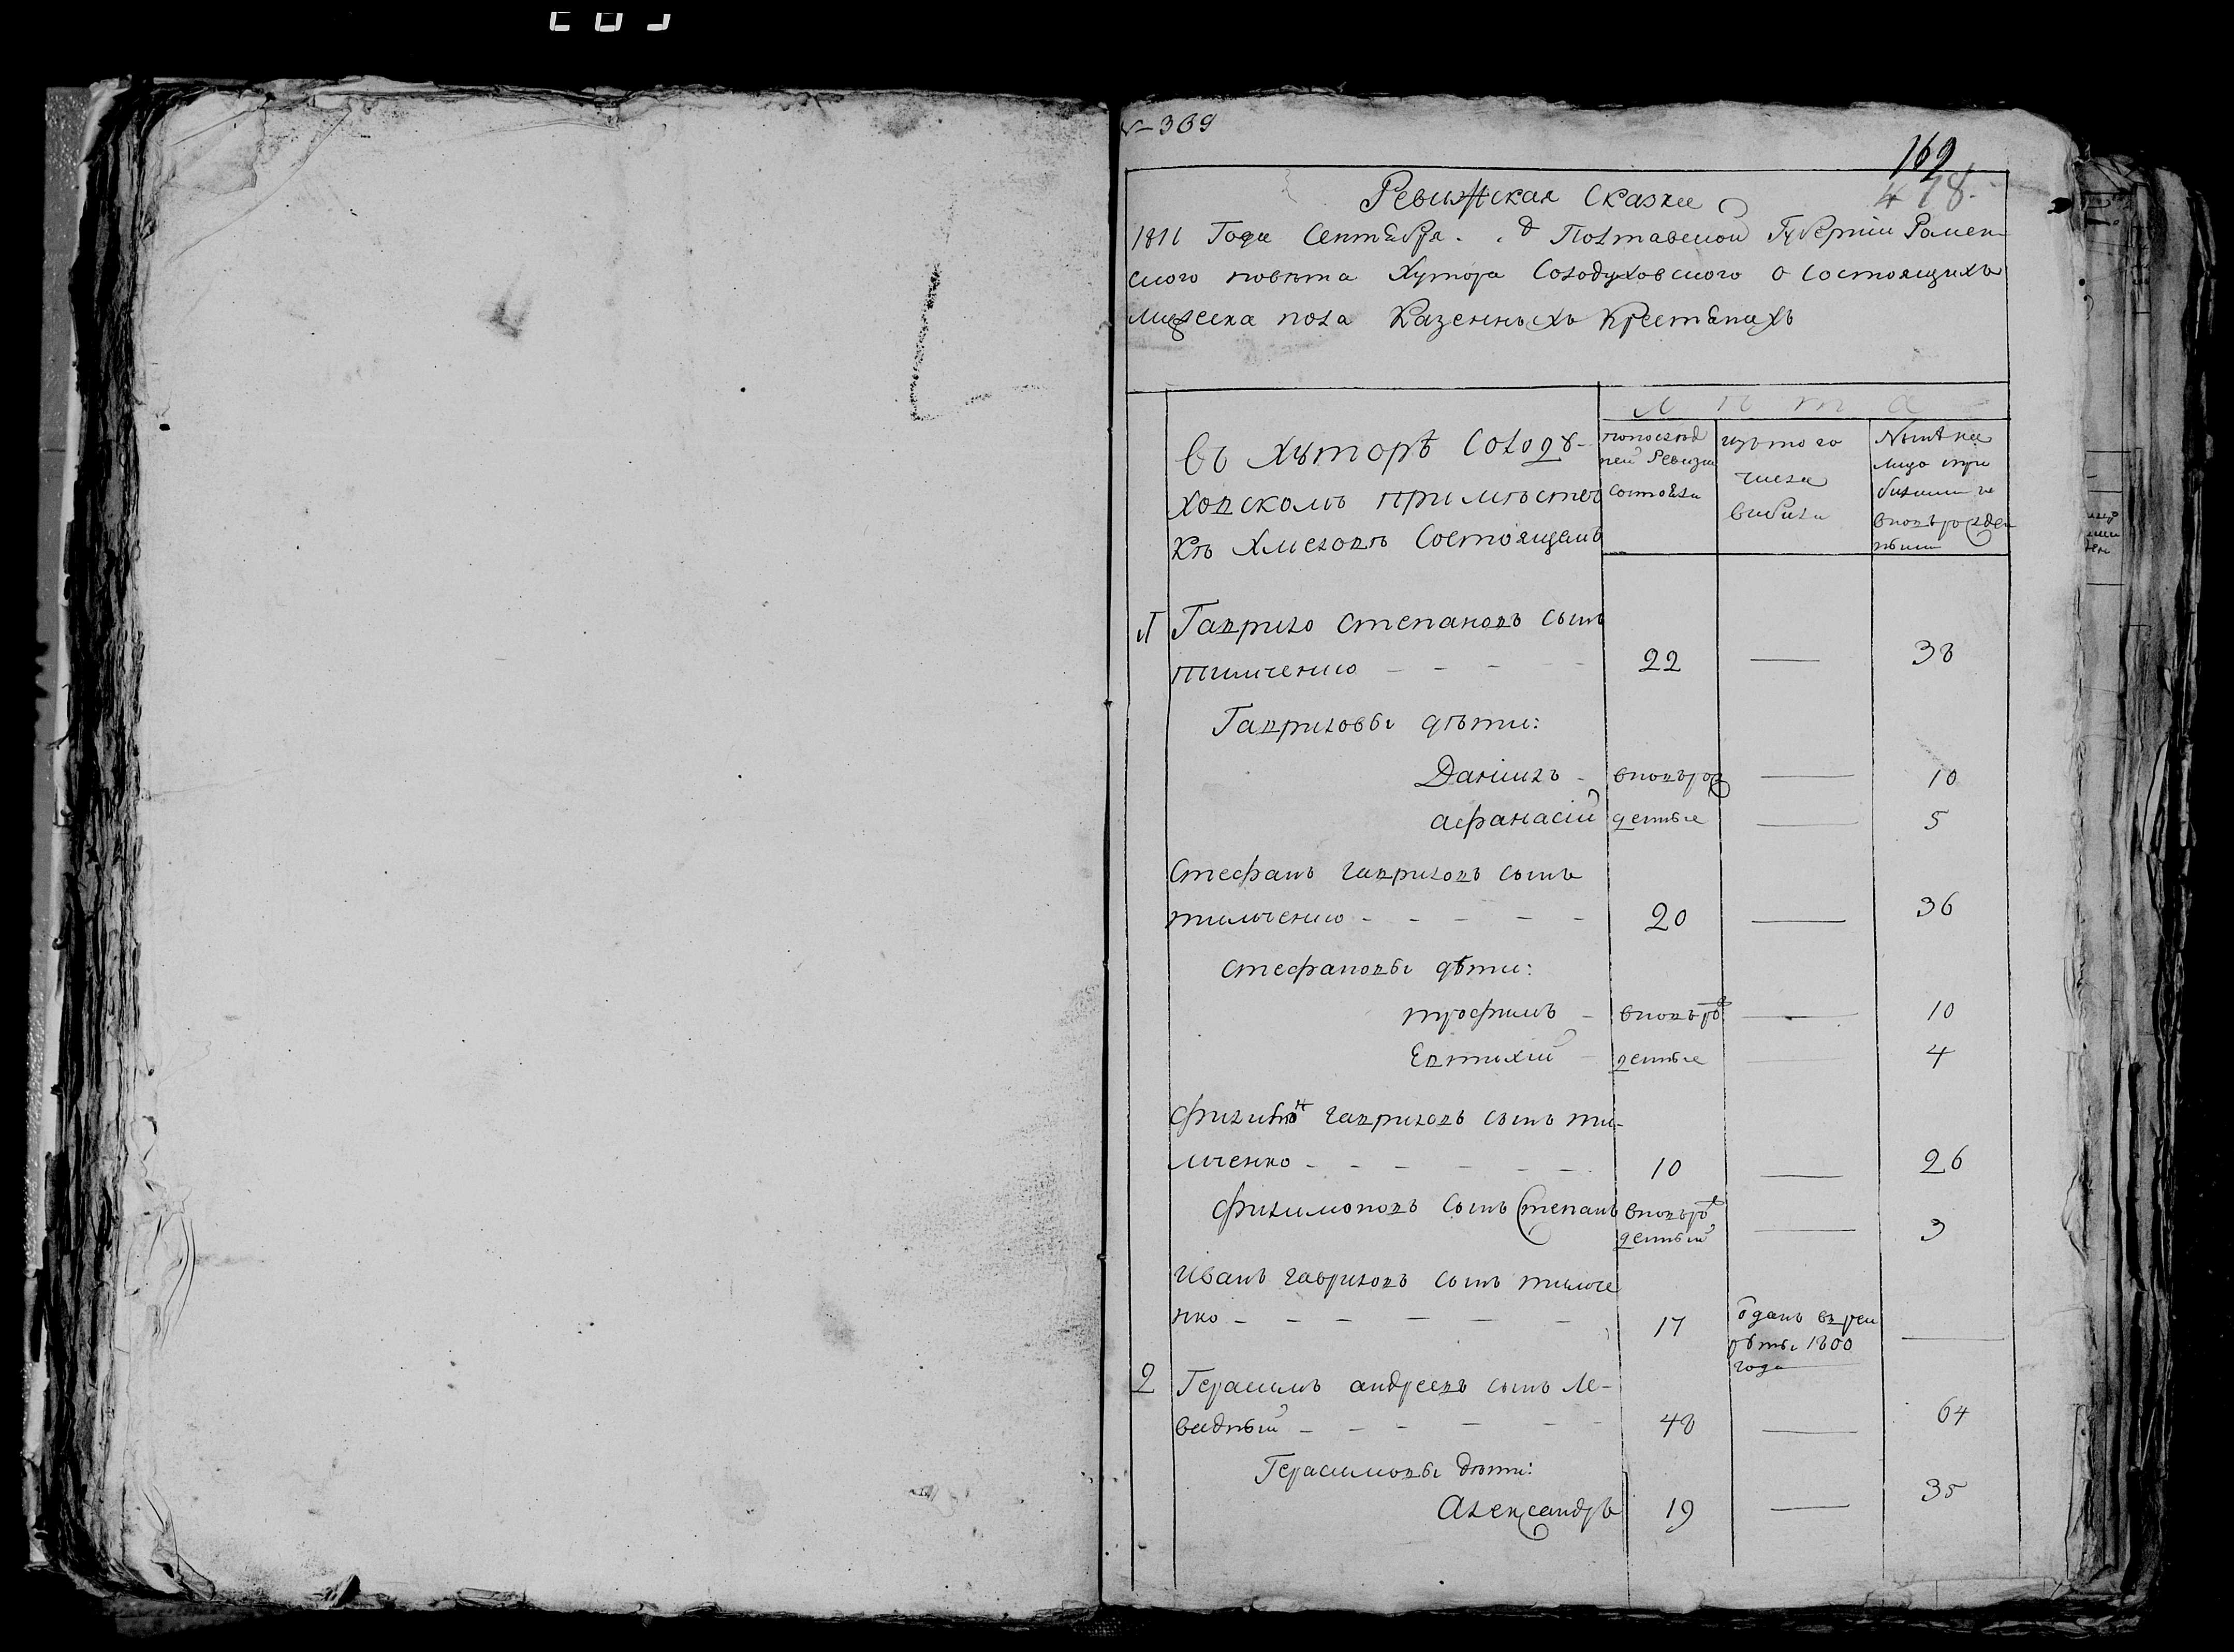 № 369
169
478
Ревижская Сказка
1811 Года Сентября. д Полтавской Губерніи Ромен
ского повѣта Хутора Солодуховского о состоящихъ
мужеска пола Казенныхъ Крестянахъ
Лѣта
въ хуторѣ Солоду-
ховскомъ при мѣстеч
кѣ Хмеловѣ Состоящемъ
попослѣд
ней Ревизіи
состояли
изътого
числа
выбыли
Нынѣ на
лицо спри
былыми и
вновърожден
ными
1 Гаврило степановъ сынъ
тимченко - - - - 22 — 38
Гавриловы дѣти:
Даніилъ - вновърож — 10
афанасій денные — 5
Стефанъ гавриловъ сынъ
тимченко - - - - - 20 — 36
стефановы дѣти:
трофимъ - вновърож — 10
Евтихій - денные — 4
филимонъ гавриловъ сынъ ти-
мченко - - - - - - 10 — 26
филимоновъ сынъ Степанъ вновърож
денный — 3
Иванъ гавриловъ сынъ тимче
нко - - - - - - 17 отданъ в рек
руты 1800 —
года
2 Герасимъ андреевъ сынъ Ле-
вадный - - - - - - 48 — 64
Герасимовы дѣти:
Александръ 19 — 35